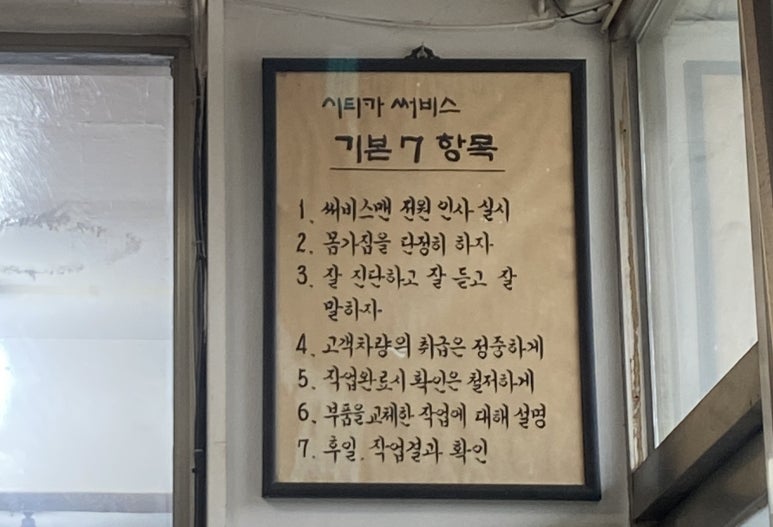 시티카 써비스
기본 7 항목
1. 써비스맨 전원 인사 실시
2. 몸가짐을 단정히 하자
3. 잘 진단하고 잘 듣고 잘
말하자
4. 고객차량의 취급은 정중하게
5. 작업완료시 확인은 철저하게
6. 부품을 교체한 작업에 대해 설명
7. 후일. 작업결과 확인